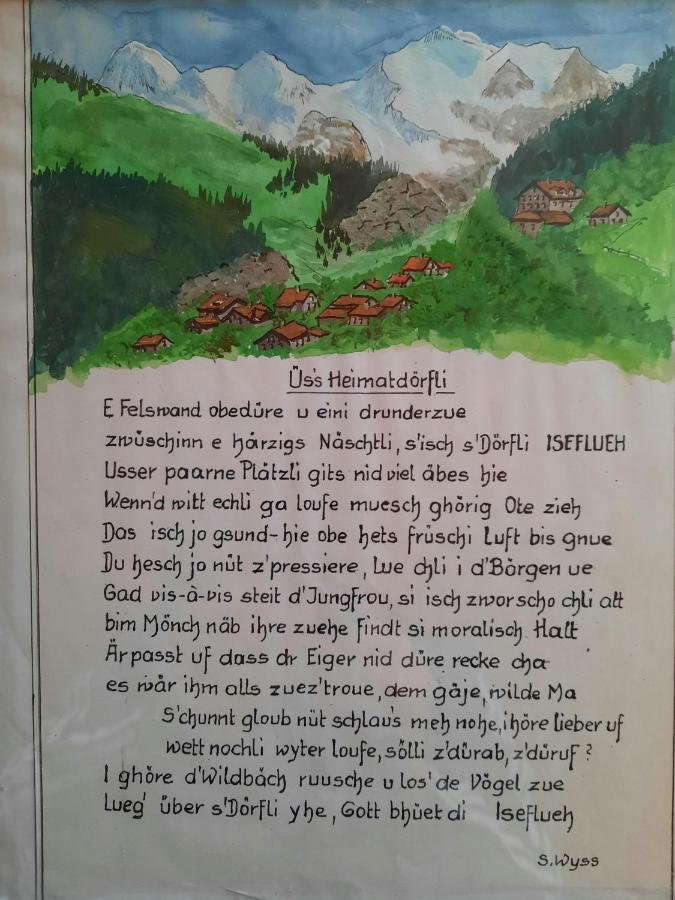 Üs's Heimatdörfli
E Felswand obedüre u eini drunderzue
zwüschinn e härzigs Näschtli, s'isch s'Dörfli ISEFLUEH
Usser paarne Plätzli gits nid viel äbes hie
Wenn'd witt echli ga loufe muesch ghörig Ote zieh
Das isch jo gsund-hie obe hets früschi Luft bis gnue
Du hesch jo nüt z'pressiere, lue chli i d'Bärgen ue
Gad vis-à-vis steit d'Jungfrou, si isch zworscho chli alt
bim Mönch näb ihre zuehe findt si moralisch Halt
Är passt uf dass dr Eiger nid düre recke cha
es wär ihm alls zuez'troue, dem gäje, wilde Ma
S'chunnt gloub nüt schlau's meh nohe, i höre lieber uf
wett nochli wyter loufe, sölli z'dürab, z'düruf?
I ghöre d'Wildbäch ruusche u los' de Vögel zue
Lueg' über s'Dörfli yhe, Gott bhüet di Iseflueh
S. Wyss